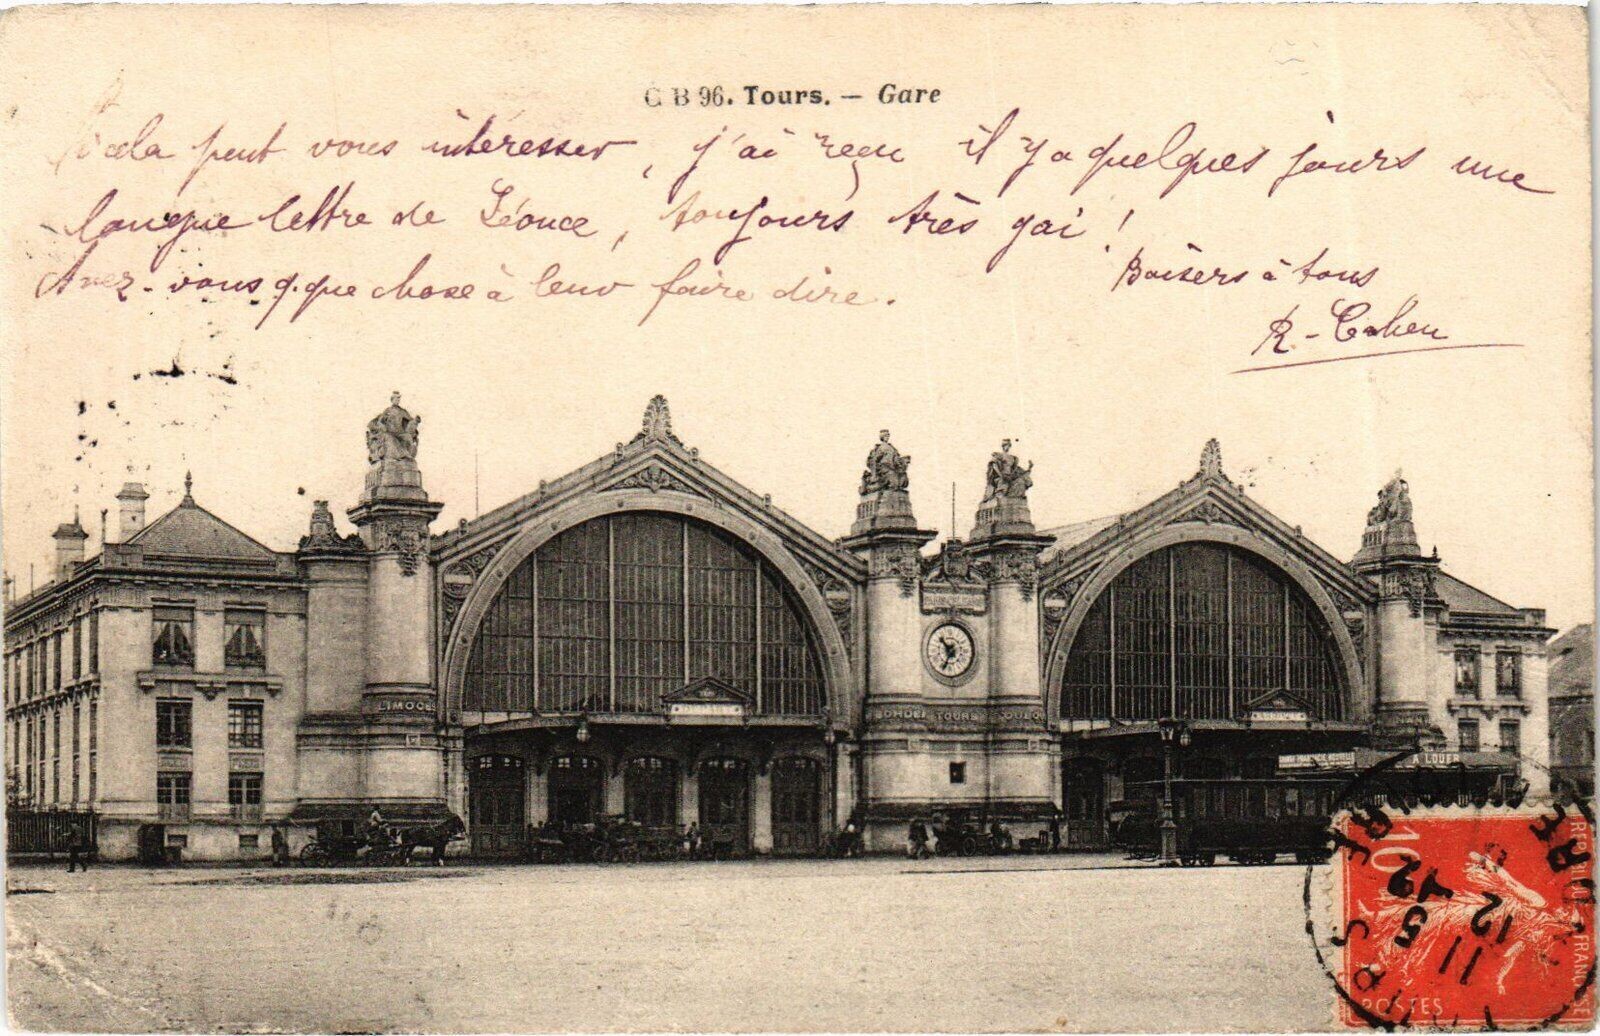 G B 96. Tours. — Gare
Si cela peut vous intéresser, j'ai reçu il y a quelques jours une
longue lettre de Léonce, toujours très gai !
Avez-vous q. que chose à leur faire dire.
Baisers à tous
R-Cahen
LIMOGES
BORDE TOURS
A LOUER
10
POSTES
FRANÇAISE
11 5
12 12
INDRE